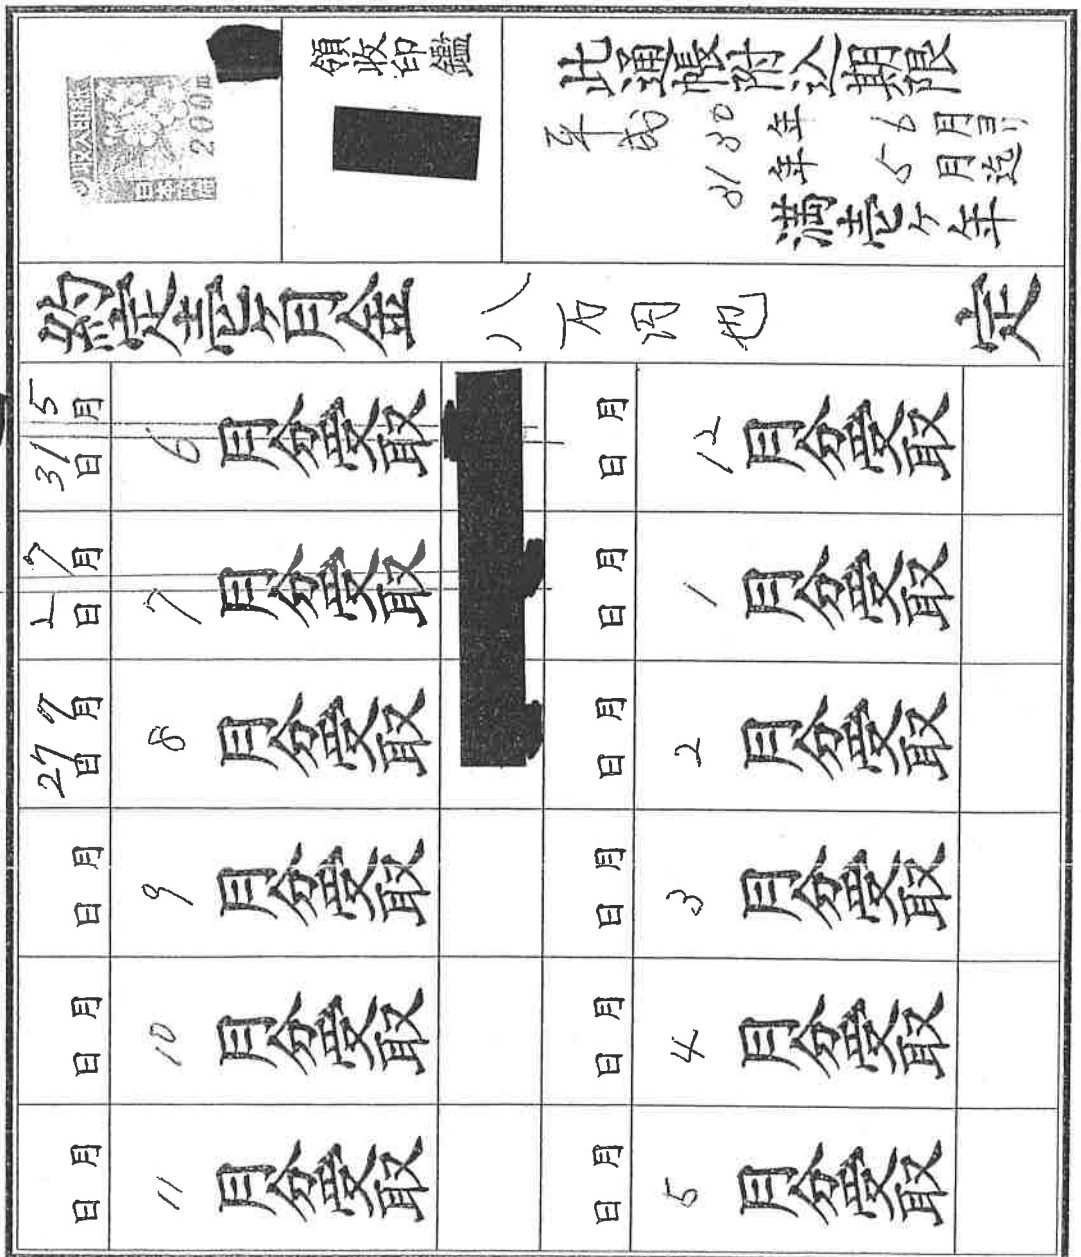 此通帳附込期限
平成30年6月ヨリ
31年5月迄
満壱ケ年
領收印鑑
収入印紙
200円
日本政府
約定壱ケ月金 八万円也 定
5月31日 6月分受取
7月 日 7月分受取
7月27日 8月分受取
月 日 9月分受取
月 日 10月分受取
月 日 11月分受取
月 日 12月分受取
月 日 1月分受取
月 日 2月分受取
月 日 3月分受取
月 日 4月分受取
月 日 5月分受取